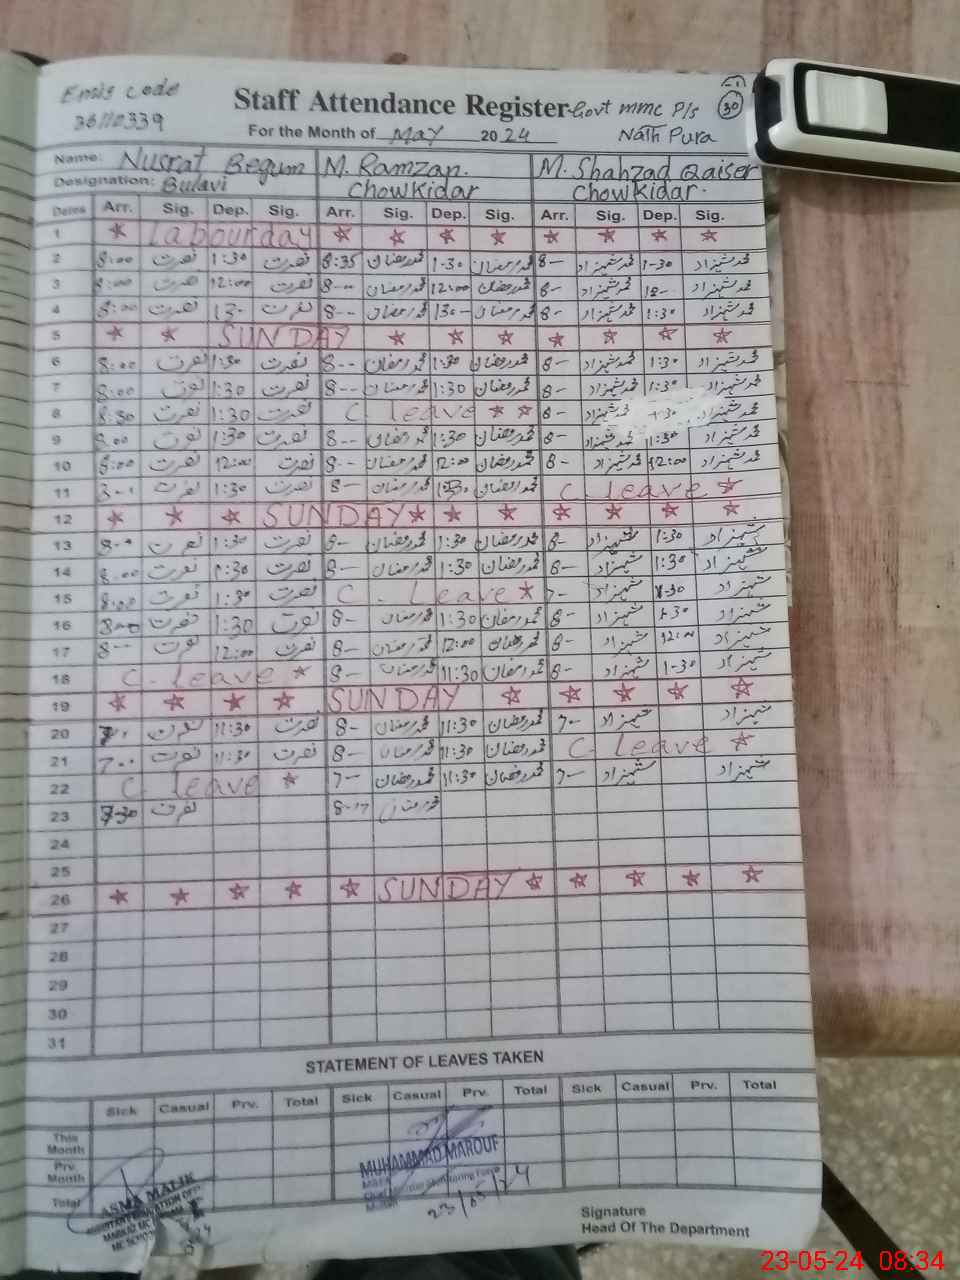 Emis code
36110339
Staff Attendance Register Govt mmc P/s
30
For the Month of May 2024 Nath Pura
Name: Nusrat Begum M. Ramzan. M. Shahzad Qaiser
Designation: Bulavi Chowkidar Chowkidar.
Dates Arr. Sig. Dep. Sig. Arr. Sig. Dep. Sig. Arr. Sig. Dep. Sig.
1 Labour day
2 8:00 نصرت 1:30 نصرت 8:35 محمد رمضان 1-30 محمد رمضان 8- محمد شہزاد 1-30 محمد شہزاد
3 8:00 نصرت 12:00 نصرت 8-- محمد رمضان 12:00 محمد رمضان 8- محمد شہزاد محمد شہزاد
4 8:00 نصرت نصرت 8-- محمد رمضان محمد رمضان 8- محمد شہزاد 1:30 محمد شہزاد
5 SUNDAY
6 8:00 نصرت 1:30 نصرت 8-- محمد رمضان 1:30 محمد رمضان 8- محمد شہزاد 1:30 محمد شہزاد
7 8:00 نصرت 1:30 نصرت 8-- محمد رمضان 1:30 محمد رمضان 8- محمد شہزاد 1:30 محمد شہزاد
8 8:30 نصرت 1:30 نصرت C. leave 8- محمد شہزاد 1-30 محمد شہزاد
9 8:00 نصرت 1:30 نصرت 8-- محمد رمضان 1:30 محمد رمضان 8- محمد شہزاد 11:30 محمد شہزاد
10 8:00 نصرت 12:00 نصرت 8-- محمد رمضان 12:00 محمد رمضان 8- محمد شہزاد 12:00 محمد شہزاد
11 نصرت 1:30 نصرت 8- محمد رمضان محمد رمضان C. leave
12 SUNDAY
13 8-- نصرت 1:30 نصرت 8- محمد رمضان 1:30 محمد رمضان 8- شہزاد 1:30 شہزاد
14 8:00 نصرت 1:30 نصرت 8- محمد رمضان 1:30 محمد رمضان 8- شہزاد 1:30 شہزاد
15 8:00 نصرت 1:30 نصرت C. Leave 7- شہزاد 1-30 شہزاد
16 نصرت 1:30 نصرت 8- محمد رمضان 1:30 محمد رمضان 8- شہزاد 1:30 شہزاد
17 8-- نصرت 12:00 نصرت 8- محمد رمضان 12:00 محمد رمضان 8- شہزاد 12:00 شہزاد
18 C. leave 8- محمد رمضان 11:30 محمد رمضان 8- شہزاد 1-30 شہزاد
19 SUNDAY
20 نصرت 11:30 نصرت 8- محمد رمضان 11:30 محمد رمضان 7- شہزاد شہزاد
21 7-- نصرت 11:30 نصرت 8- محمد رمضان 11:30 محمد رمضان C. leave
22 C leave 7- محمد رمضان 11:30 محمد رمضان 7- شہزاد شہزاد
23 7-30 نصرت
24
25
26 SUNDAY
27
28
29
30
31
STATEMENT OF LEAVES TAKEN
Sick Casual Prv. Total Sick Casual Prv. Total Sick Casual Prv. Total
This Month
Prv. Month
Total
ASMA MALIK
MUHAMMAD MAROUF
23/05/24
Signature
Head Of The Department
23-05-24 08:34